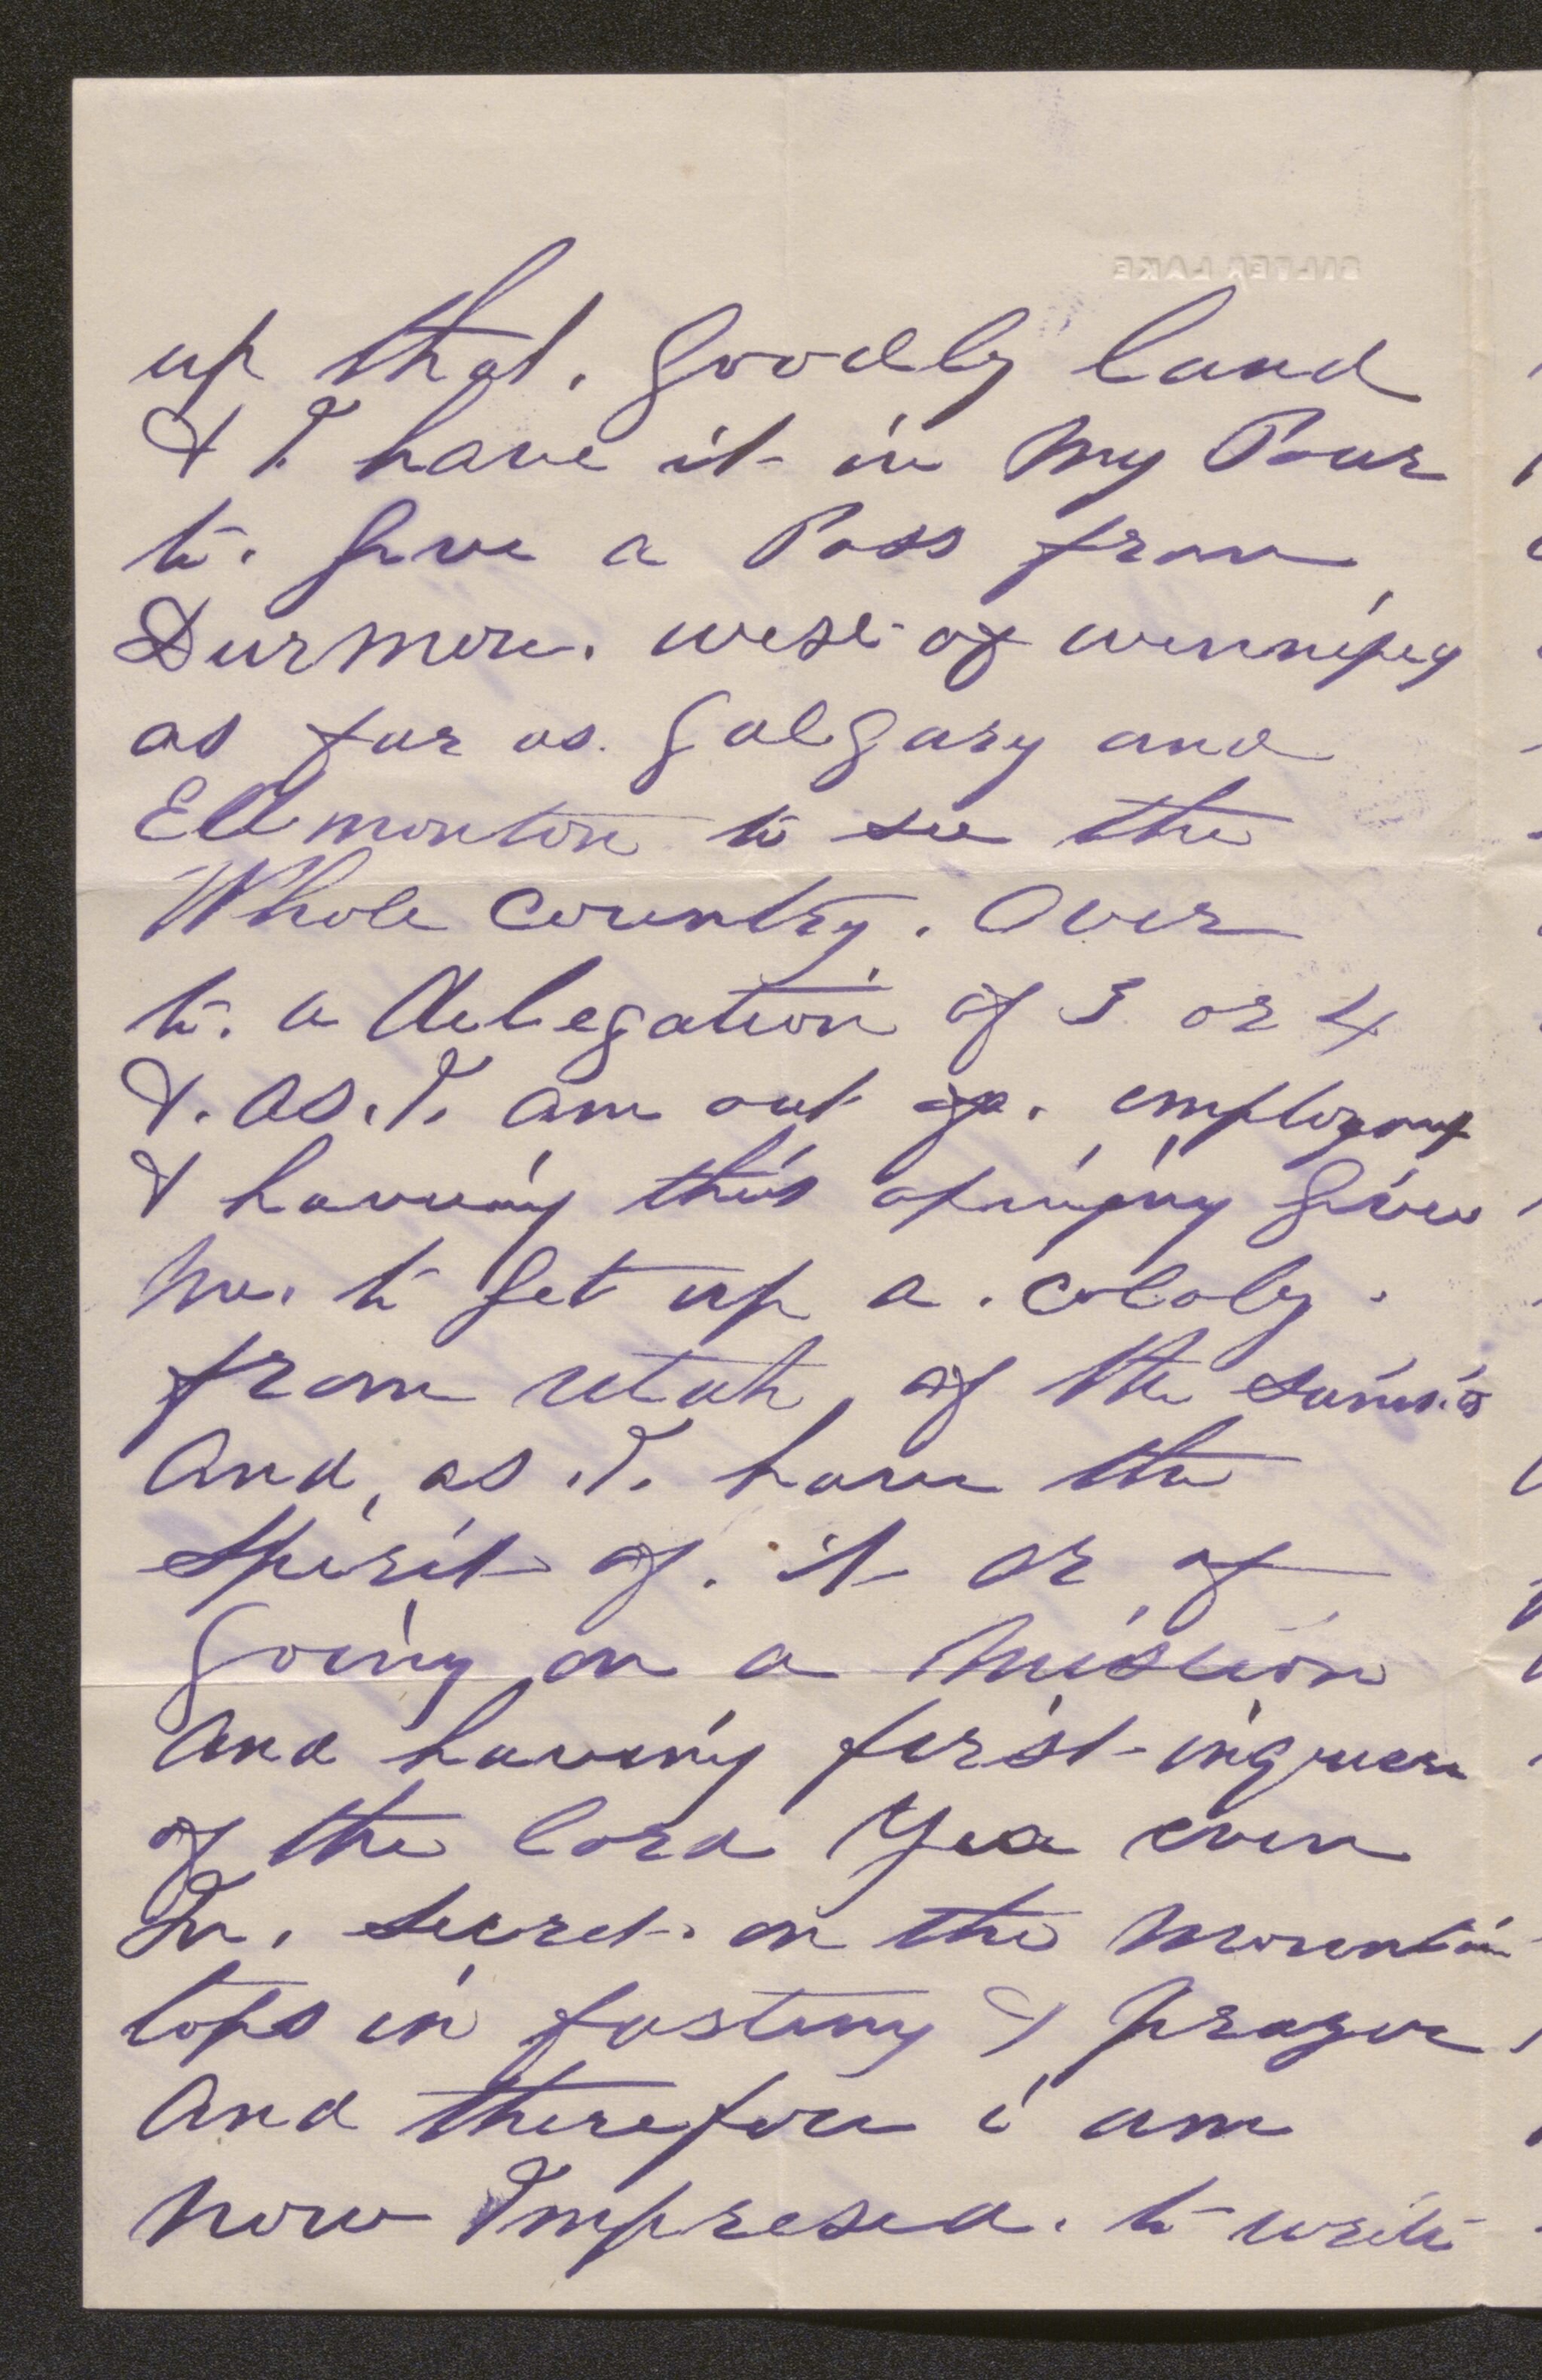 up that. goodly land
& I. have it in my Pour
to. give a Pass from
Durmore. west of winnipeg
as far as. Galgary and
Edmonton to see the
Whole country. Over
to. a delegation of 3 or 4
&. as. I. am out of. employ
& having this given
me. to get up a. coloby.
from utah, of the saints
And, as. I. have the
spirit of. it or of
going on a mission
and having first inquera
of the lord Yea even
In. secret. on the mountain
tops in fasting & prayer
And therefore i am
now Impresed. to write